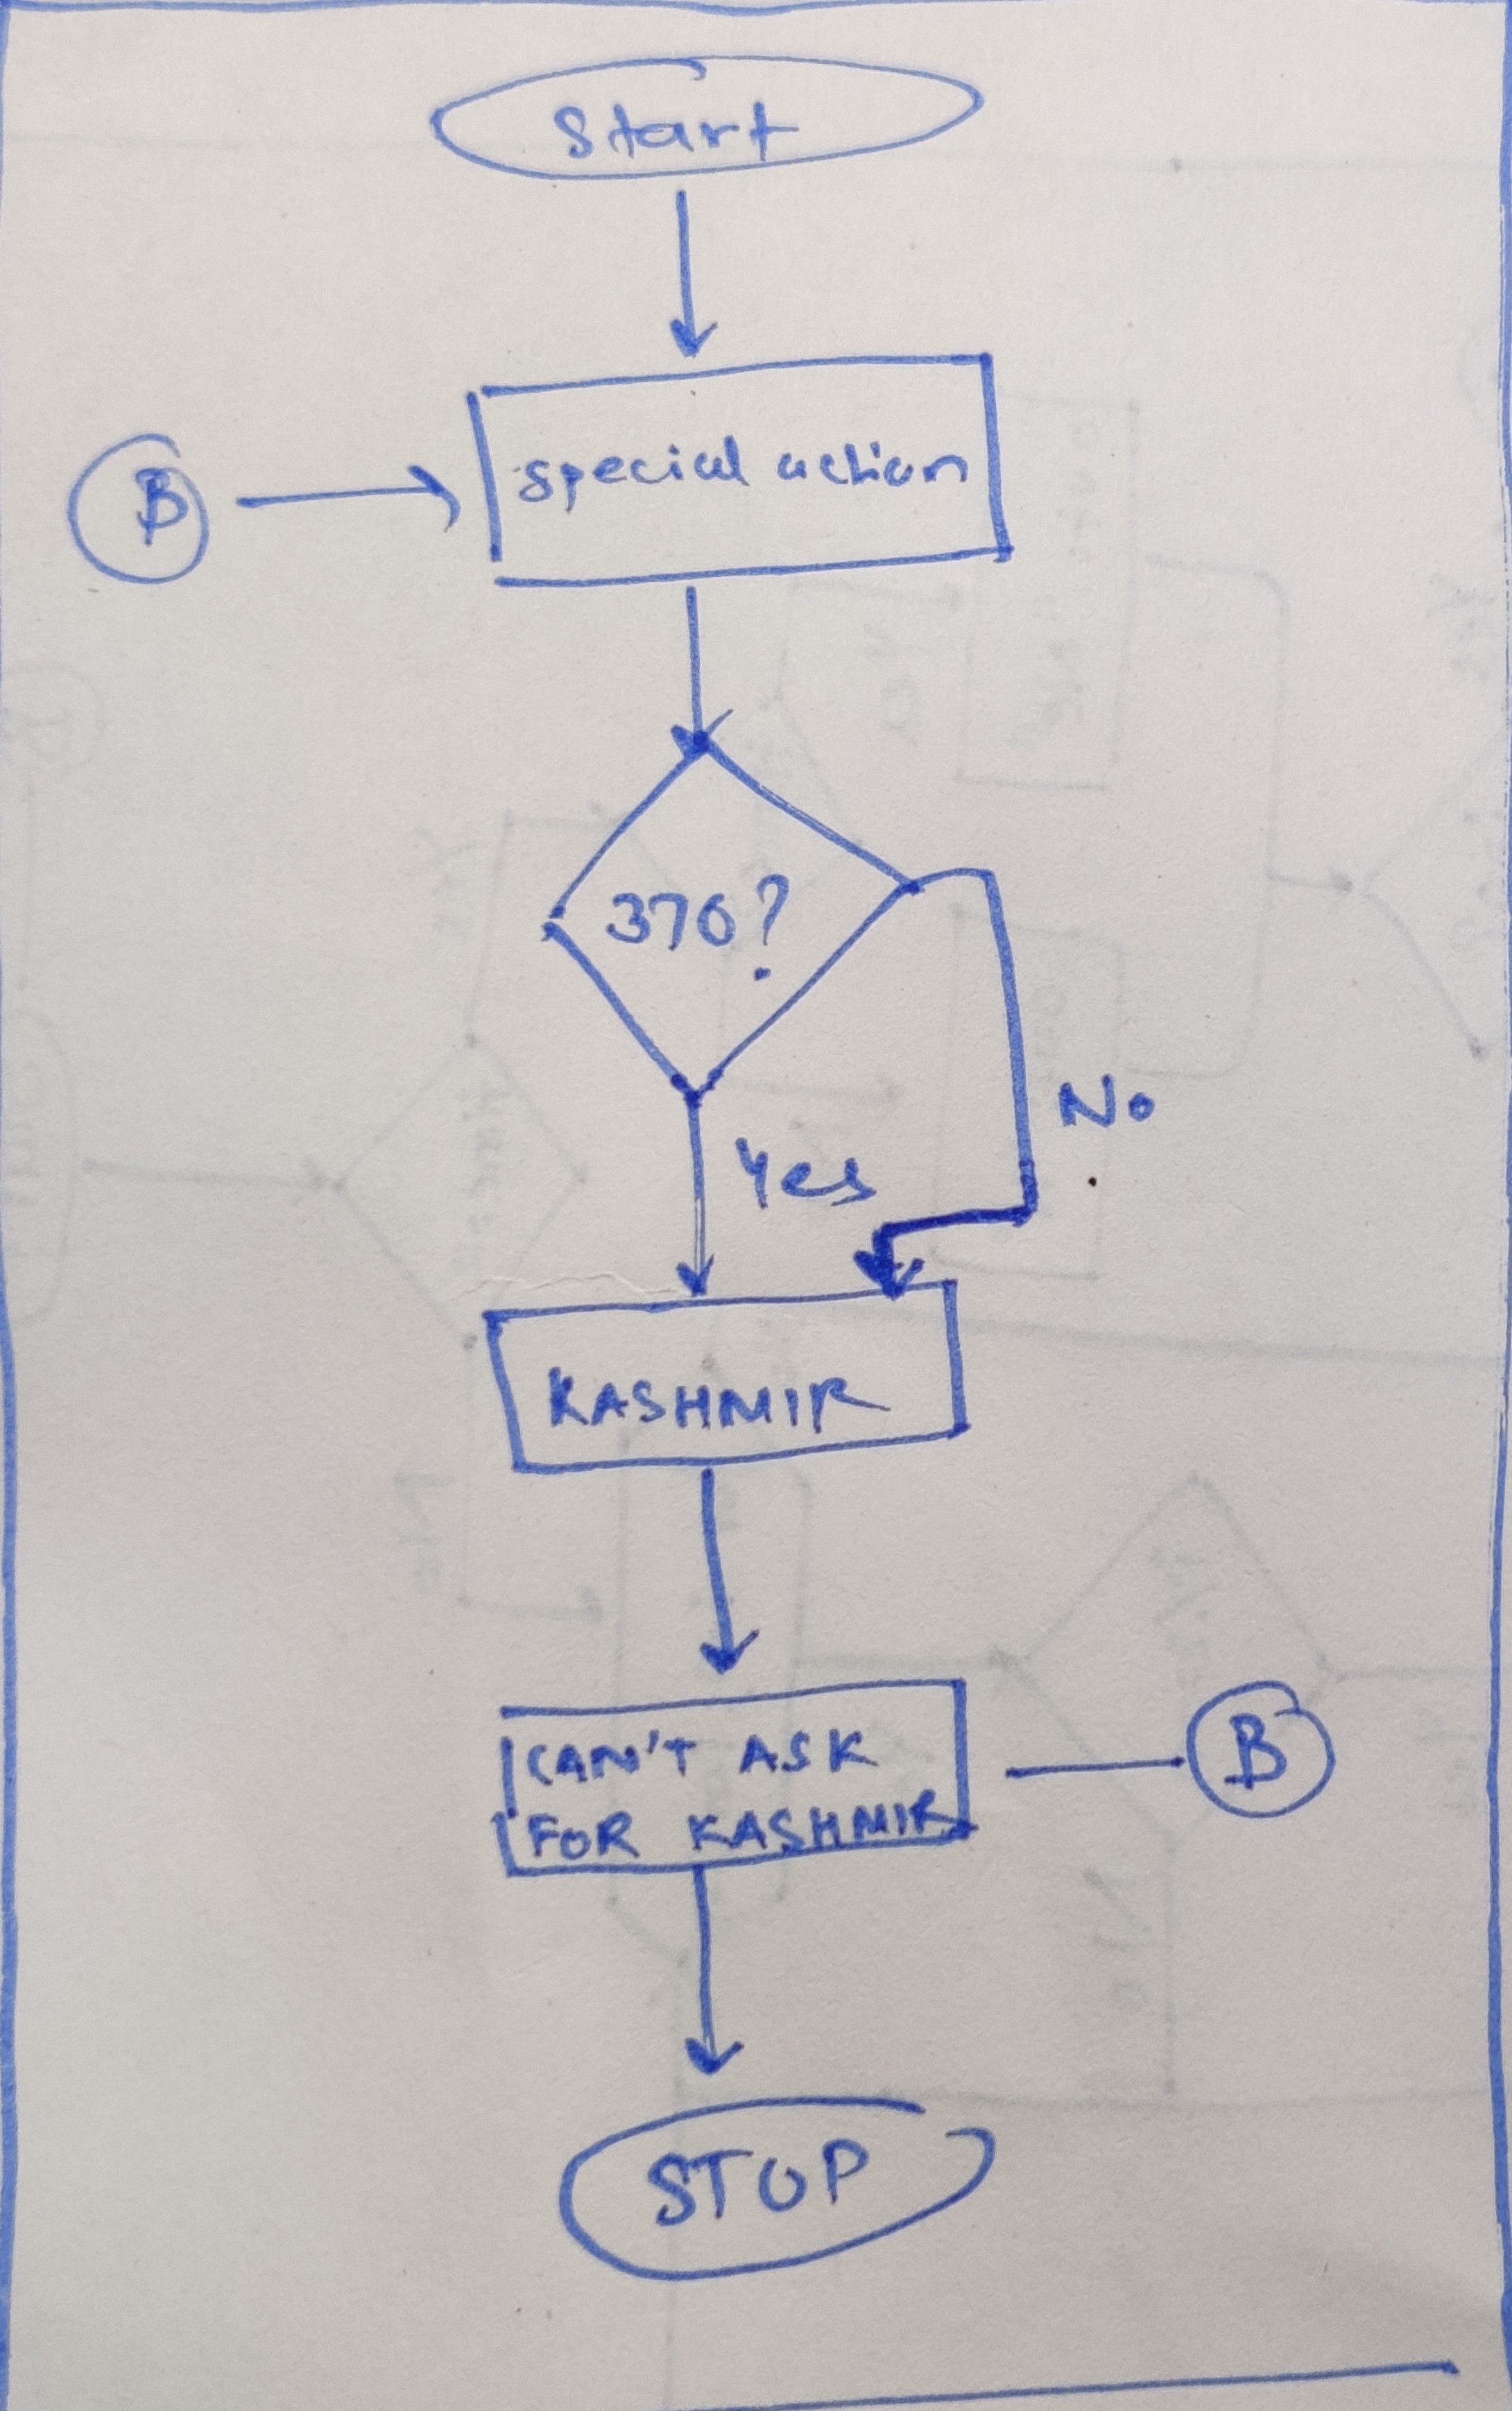 Start
B
special action
370?
No
Yes
KASHMIR
CAN'T ASK
FOR KASHMIR
B
STOP